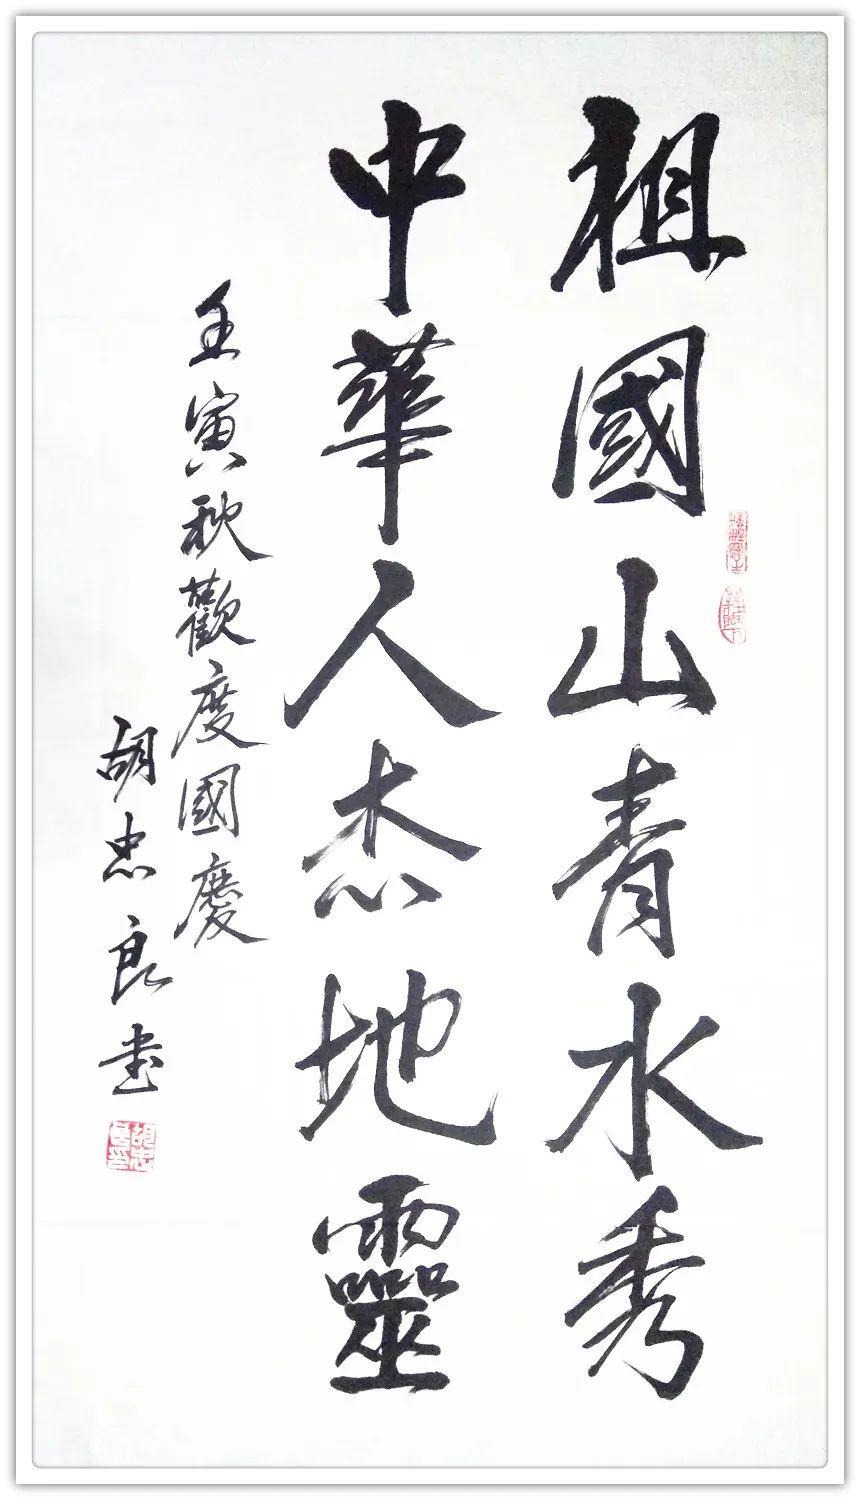 祖國山青水秀
中華人杰地靈
壬寅秋歡度國慶
胡忠良書